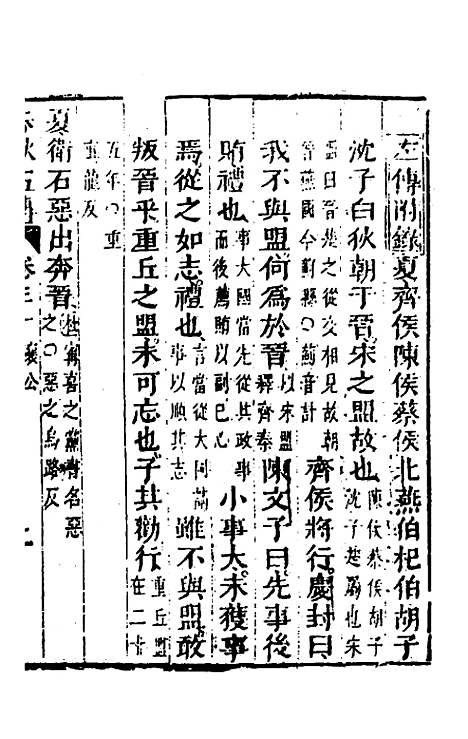 左傳附錄夏齊侯陳侯蔡侯北燕伯杞伯胡子
沈子白狄朝于晉宋之盟故也陳侯蔡侯胡子沈子楚屬也宋
盟曰晉楚之從交相見故朝晉燕國今薊縣○薊音計齊侯將行慶封曰
我不與盟何爲於晉以宋盟釋齊秦陳文子曰先事後
賄禮也事大國當先從其政事而後薦賄以副己心小事大未獲事
焉從之如志禮也言當從大國請事以順其志雖不與盟敢
叛晉乎重丘之盟未可忘也子其勸行重丘盟在二十
五年○重直龍反
夏衛石惡出奔晉甯喜之黨書名惡之○惡之烏路反
春秋五傳 卷三十 襄公